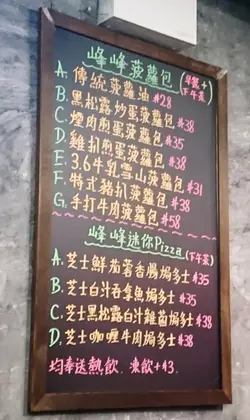 峰峰菠蘿包 (早餐+下午茶)
A. 傳統菠蘿油 $28
B. 黑松露炒蛋菠蘿包 $38
C. 煙肉煎蛋菠蘿包 $35
D. 雞扒煎蛋菠蘿包 $38
E. 3.6牛乳雪山菠蘿包 $31
F. 特式豬扒菠蘿包 $38
G. 手打牛肉菠蘿包 $58
峰峰迷你Pizza (下午茶)
A. 芝士鮮茄蓉香腸焗多士 $35
B. 芝士白汁吞拿魚焗多士 $35
C. 芝士黑松露白汁雜菌焗多士 $38
D. 芝士咖喱牛肉焗多士 $38
均奉送熱飲. 凍飲+$3.